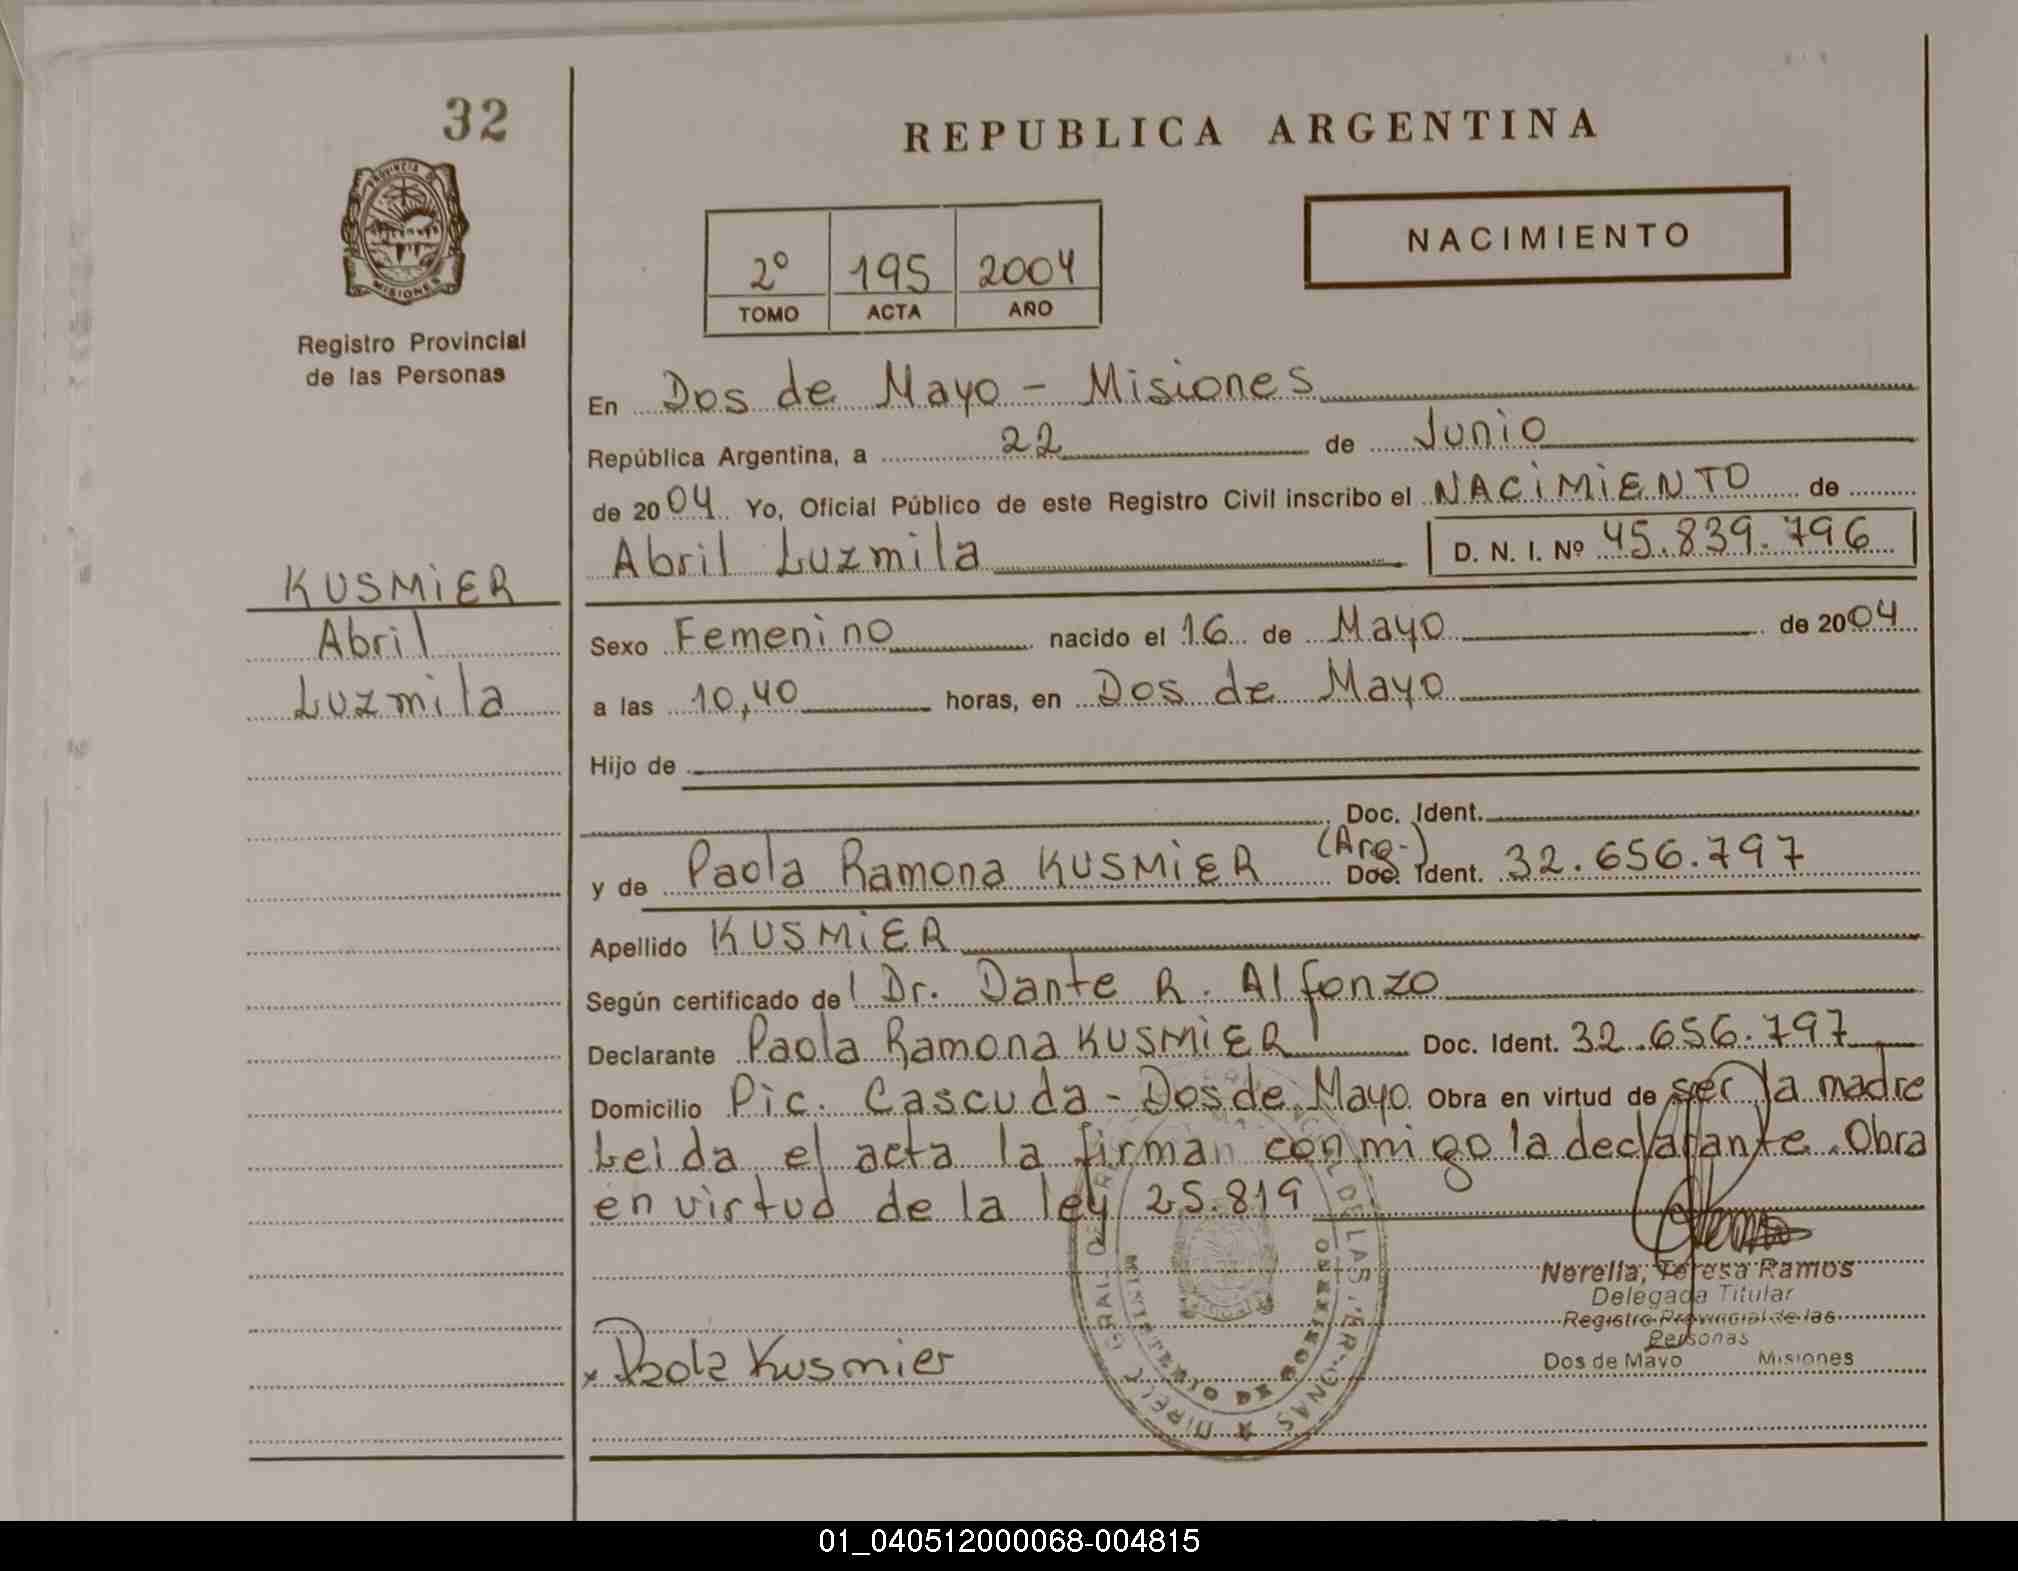 32
REPUBLICA ARGENTINA
NACIMIENTO
2º 195 2004
TOMO ACTA AÑO
MISIONES
Registro Provincial
de las Personas
En Dos de Mayo - Misiones
República Argentina, a 22 de Junio
de 2004 Yo, Oficial Público de este Registro Civil inscribo el NACIMIENTO de
Abril Luzmila D. N. I. Nº 45.839.796
KUSMIER
Abril
Luzmila
Sexo Femenino nacido el 16 de Mayo de 2004
a las 10,40 horas, en Dos de Mayo
Hijo de
Doc. Ident.
y de Paola Ramona KUSMIER (Arg.) Doc. Ident. 32.656.797
Apellido KUSMIER
Según certificado de Dr. Dante R. Alfonzo
Declarante Paola Ramona KUSMIER Doc. Ident. 32.656.797
Domicilio Pic. Cascuda - Dos de Mayo Obra en virtud de ser la madre
Leida el acta la firman conmigo la declarante. Obra
en virtud de la ley 25.819
Norella, Teresa Ramos
Delegada Titular
Registro Provincial de las
Personas
Dos de Mayo Misiones
x Paola Kusmier
01_040512000068-004815